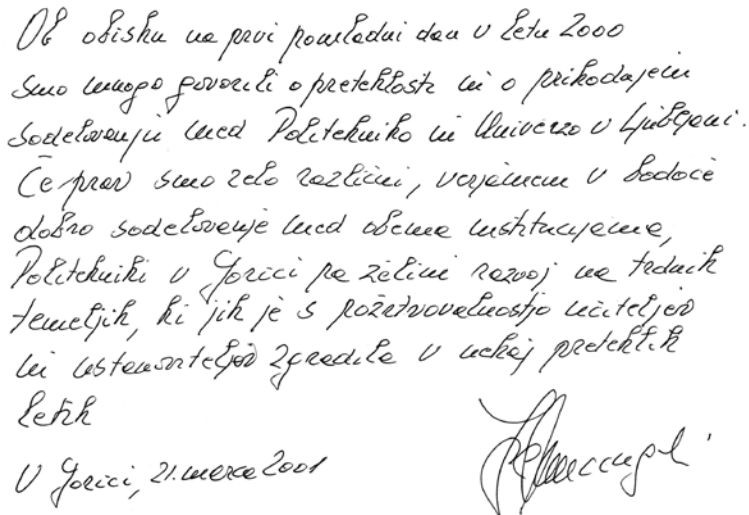 Ob obisku na prvi pomladni dan v letu 2000
smo mnogo govorili o preteklosti in o prihodnjem
sodelovanju med Politehniko in Univerzo v Ljubljani.
Če prav smo zelo različni, verjamem v bodoče
dobro sodelovanje med obema institucijama,
Politehniki v Gorici pa želim razvoj na trdnih
temeljih, ki jih je s požrtvovalnostjo učiteljev
in ustanoviteljev zgradila v nekaj preteklih
letih
V Gorici, 21. marca 2001